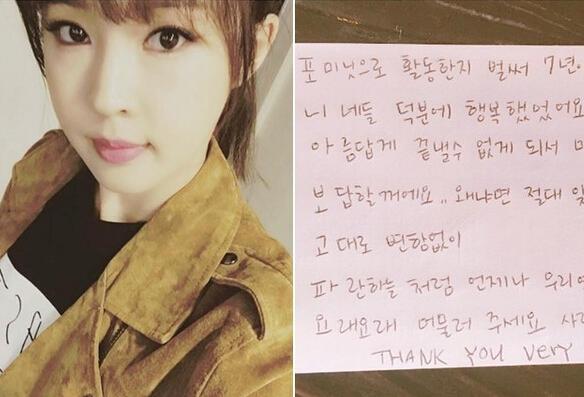 포미닛으로 활동한지 벌써 7년이
니네들 덕분에 행복했었어요
아름답게 끝낼수 없게 되서
보답할꺼에요.. 왜냐면 절대
고대로 변함없이
파란하늘 처럼 언제나 우리
요래요래 머물러 주세요
THANK YOU VERY